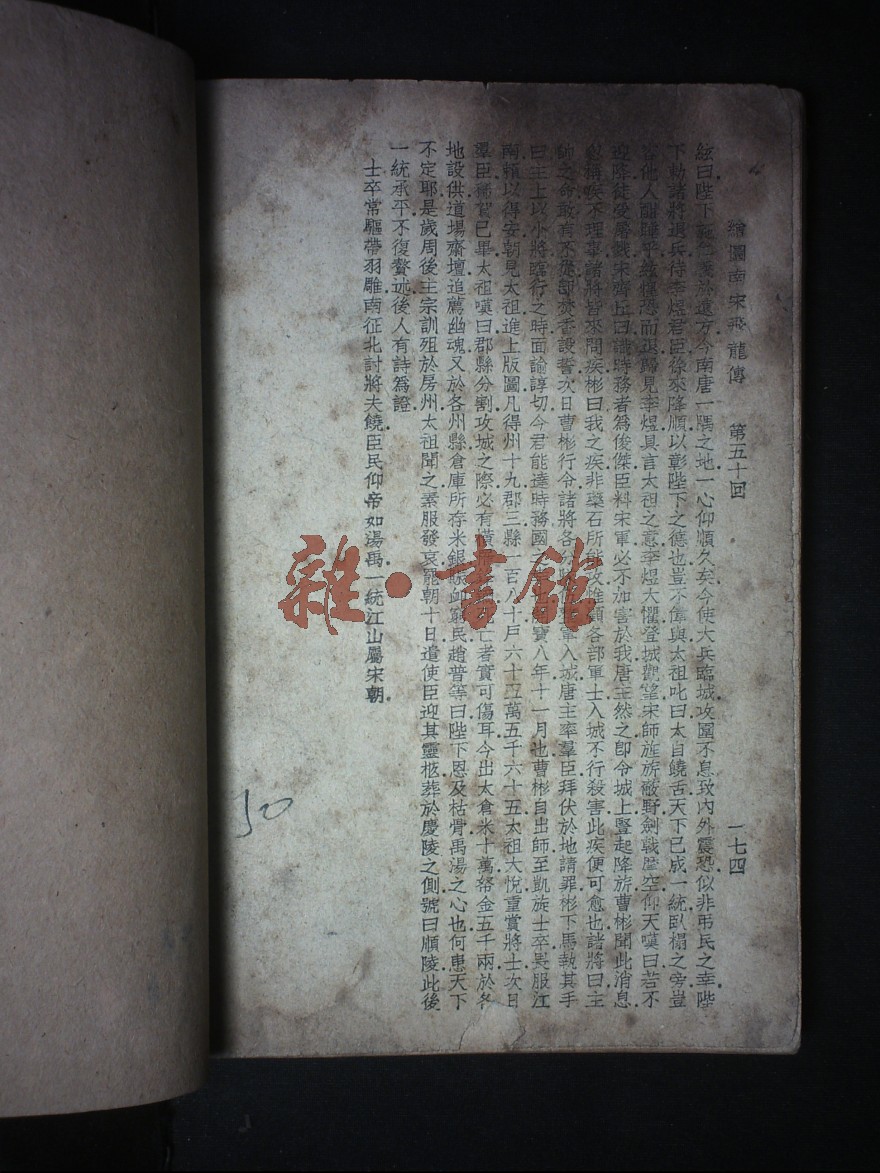 繪圖南宋飛龍傳 第五十回 一七四
絃曰陛下於遠方今南唐一隅之地一心仰順久矣今使大兵臨城攻圍不息致內外震恐似非弔民之幸陛
下勅諸將退兵待李煜君臣徐來降順以彰陛下之德也豈不偉與太祖叱曰太自饒舌天下已成一統臥榻之旁豈
容他人酣睡乎絃惶恐而退歸見李煜具言太祖之意李煜大懼登城觀望宋師旌旂蔽野劍戟摩空仰天嘆曰若不
迎降徒受屠戮宋齊丘曰識時務者為俊傑臣料宋軍必不加害於我唐主然之即令城上豎起降旂曹彬聞此消息
稱疾不理事諸將皆來問疾彬曰我之疾非藥石所能攻惟願各部軍士入城不行殺害此疾便可愈也諸將曰主
帥之命敢有不從即焚香設誓次日曹彬行令諸將各軍入城唐主率羣臣拜伏於地請罪彬下馬執其手
曰主上以小將臨行之時面諭諄切今君能達時務國寶八年十一月也曹彬自出師至凱旋士卒畏服江
南賴以得安朝見太祖進上版圖凡得州十九郡三縣一百八十戶六十五萬五千六十五太祖大悅重賞將士次日
羣臣稱賀已畢太祖嘆曰郡縣分割攻城之際必有橫亡者實可傷耳今出太倉米十萬帑金五千兩於各
地設供道場齋壇追薦幽魂又於各州縣倉庫所存米銀賑卹窮民趙普等曰陛下恩及枯骨禹湯之心也何患天下
不定耶是歲周後主宗訓殂於房州太祖聞之素服發哀罷朝十日遣使臣迎其靈柩葬於慶陵之側號曰順陵此後
一統承平不復贅述後人有詩為證
士卒常驅帶羽雕南征北討將夫饒臣民仰帝如湯禹一統江山屬宋朝
50
雜·書館